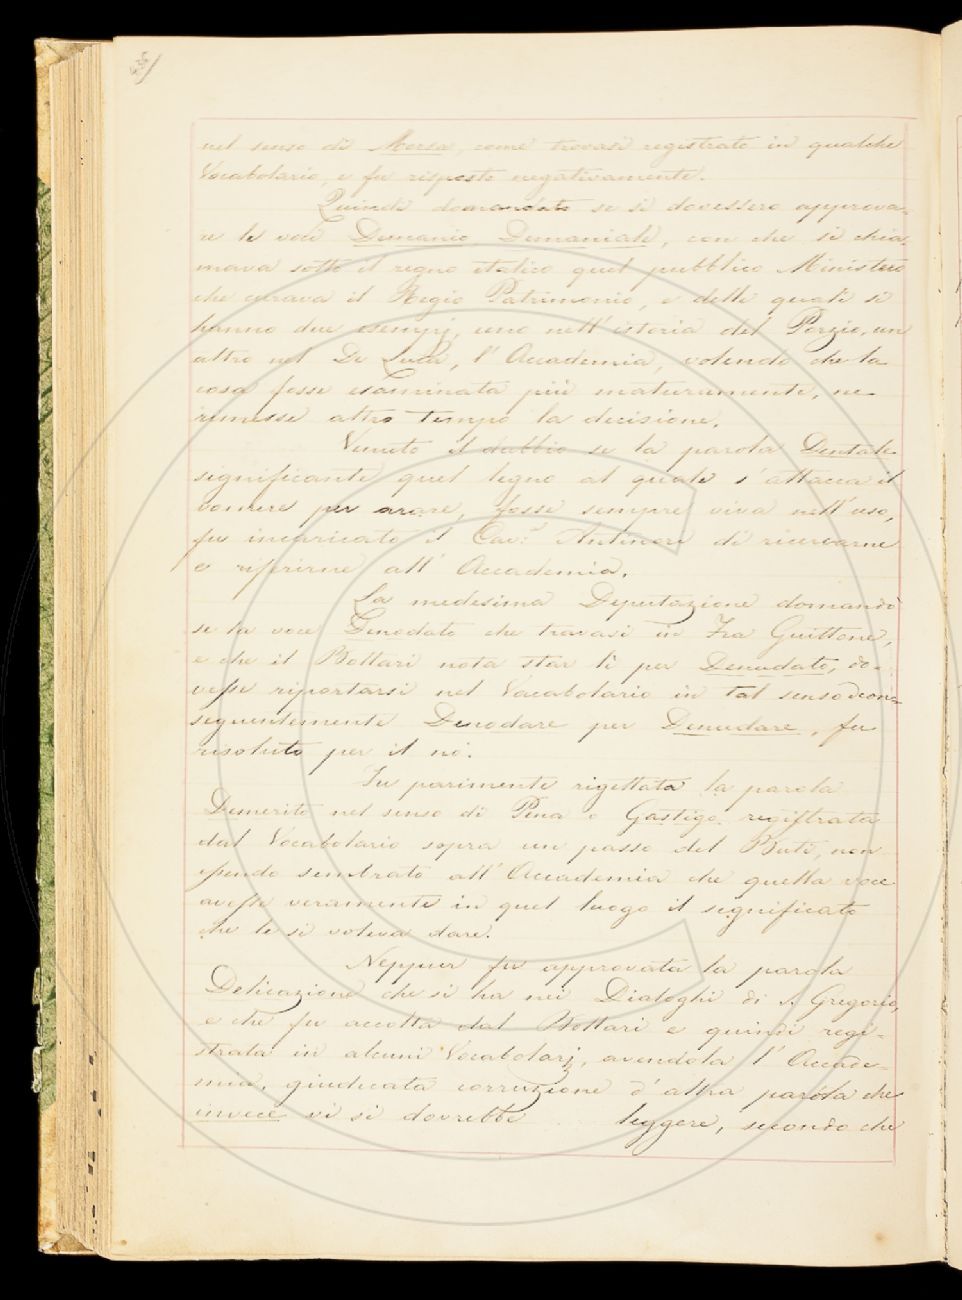 nel senso di Morsa, come trovasi registrato in qualche
Vocabolario, e fu risposto negativamente.
Quindi domandato se si dovessero approva-
re le voci Demanio Demaniale, con che si chia-
mava sotto il regno italico quel pubblico Ministero
che curava il Regio Patrimonio, e delle quali si
hanno due esempj, uno nell' istoria del Porzio, un
altro nel De Luca, l' Accademia, volendo che la
cosa fosse esaminata più maturamente, ne
rimesse altro tempo la decisione.
Venuto il dubbio se la parola Dentale
significante quel legno al quale s' attacca il
vomere per arare, fosse sempre viva nell' uso,
fu incaricato il Cav.r Antinori di ricercarne
e riferirne all' Accademia.
La medesima Deputazione domandò
se la voce Denodato che trovasi in Fra Guittone,
e che il Bottari nota star lì per Denudato, do-
vesse riportarsi nel Vocabolario in tal senso e con-
seguentemente Denodare per Denudare, fu
risoluto per il nò.
Fu parimente rigettata la parola
Demerito nel senso di Pena o Gastigo registrata
dal Vocabolario sopra un passo del Buti, non
essendo sembrato all' Accademia che quella voce
avesse veramente in quel luogo il significato
che le si voleva dare.
Neppur fu approvata la parola
Delicazione che si ha nei Dialoghi di S. Gregorio,
e che fu accolta dal Bottari e quindi regi-
strata in alcuni Vocabolarj, avendola l' Accade-
mia, giudicata corruzione d' altra parola che
invece vi si dovrebbe leggere, secondo che